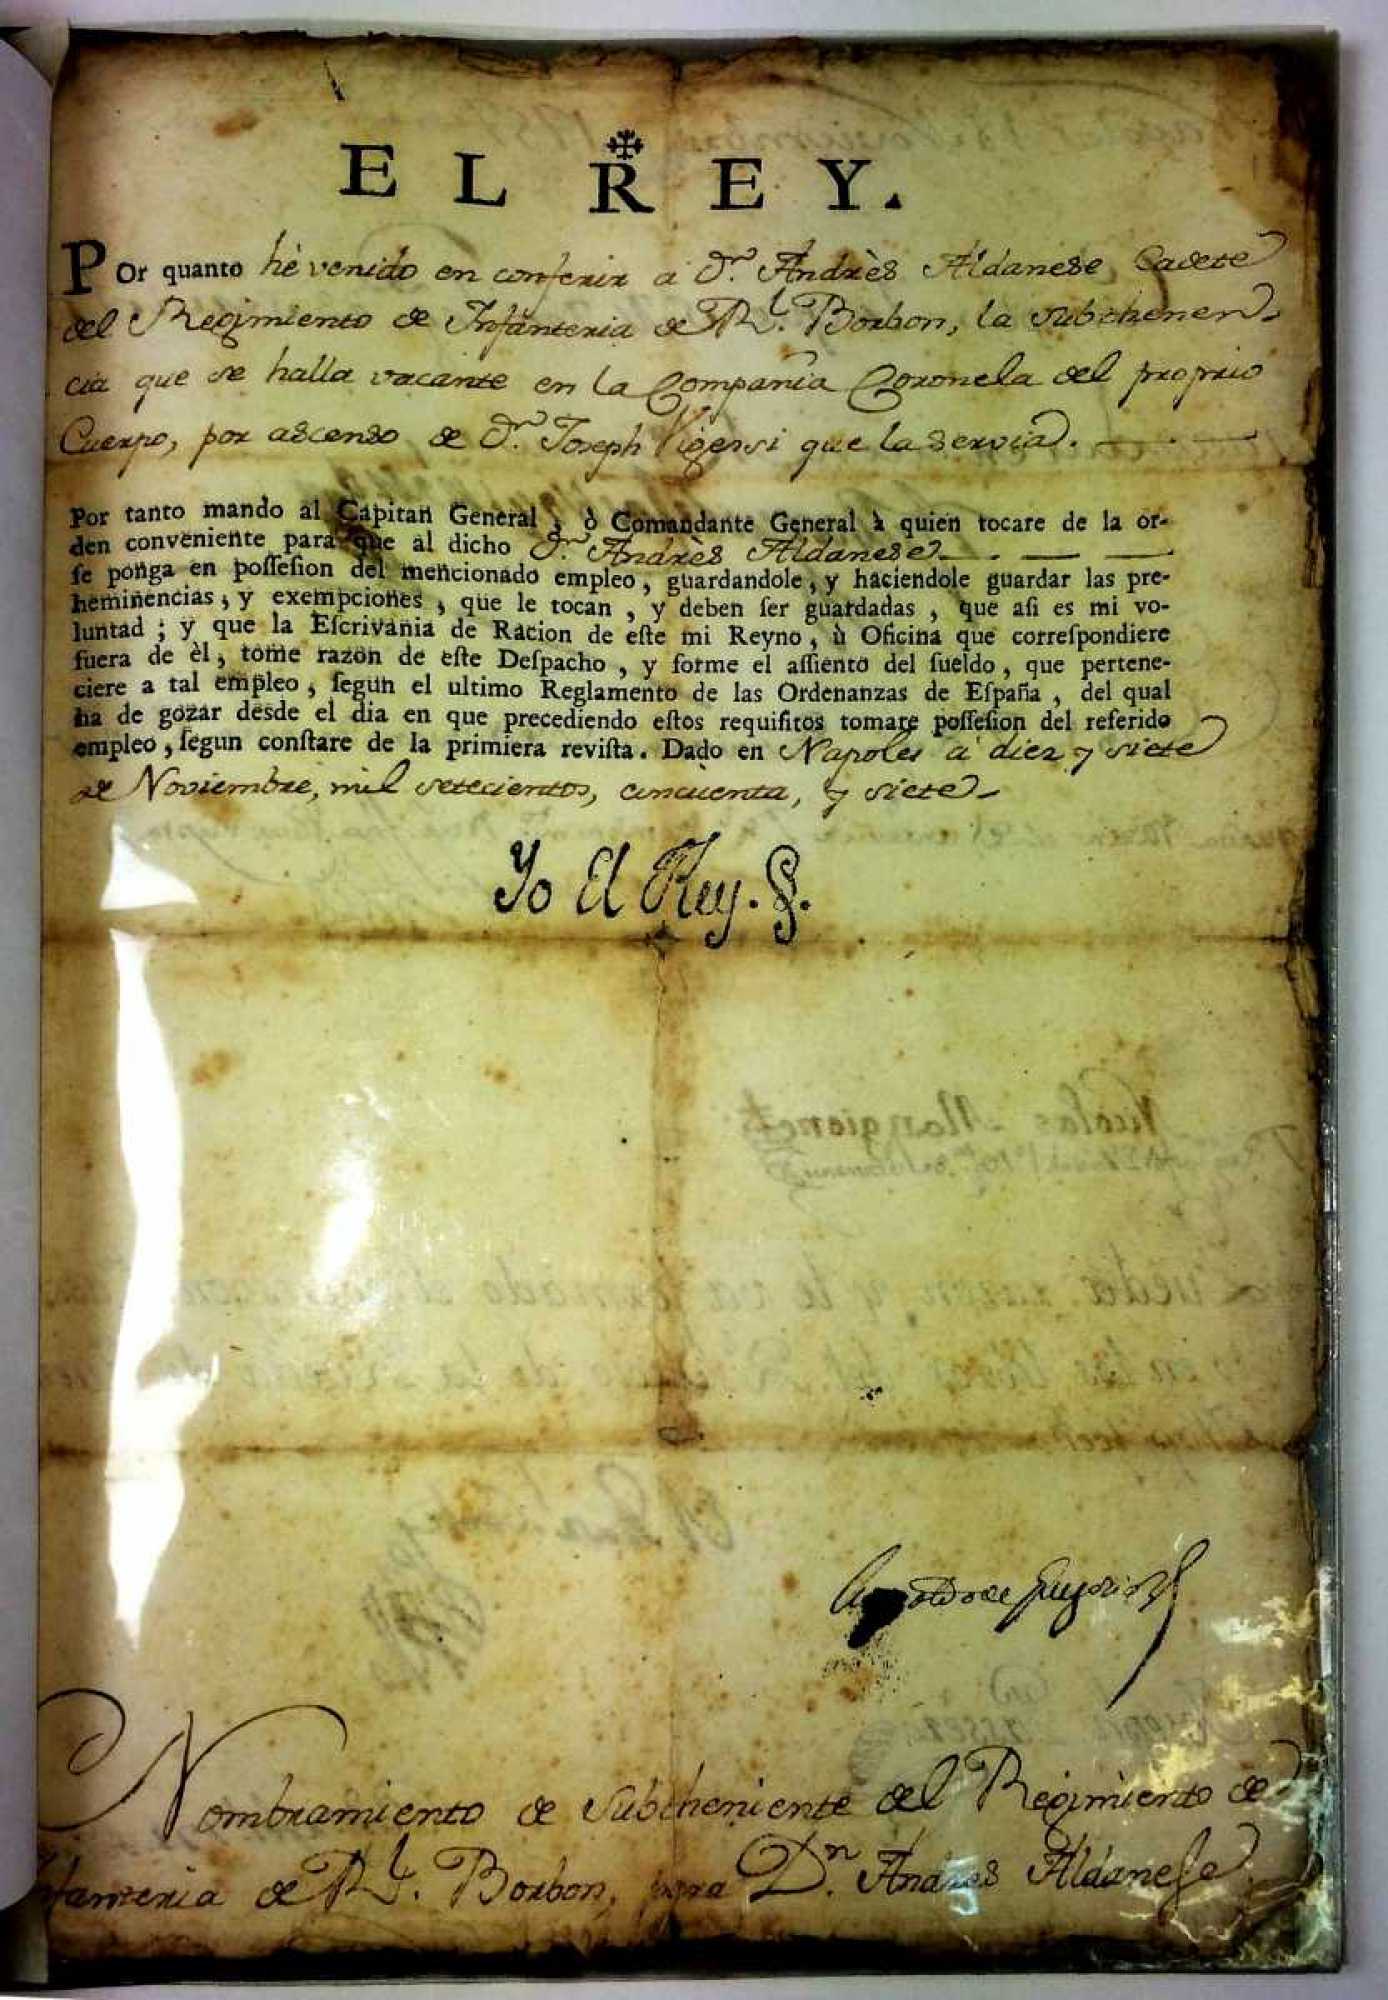 EL REY.
POr quanto hè venido en conferir a Dn. Andrès Aldanese Cadete
del Regimiento de Infanteria de Rl. Borbon, la subthenen-
cia que se halla vacante en la Compañia Coronela del proprio
Cuerpo, por ascenso de Dn. Joseph Vigensi que la servia.
Por tanto mando al Capitan General, ò Comandante General à quien tocare de la or-
den conveniente para que al dicho Dn. Andrès Aldanese
se ponga en poſſeſion del mencionado empleo, guardandole, y haciendole guardar las pre-
heminencias, y exempciones, que le tocan, y deben ſer guardadas, que aſi es mi vo-
luntad; y que la Eſcrivania de Racion de eſte mi Reyno, ù Oficina que correſpondiere
fuera de èl, tome razon de eſte Deſpacho, y forme el aſſiento del ſueldo, que pertene-
ciere a tal empleo, ſegun el ultimo Reglamento de las Ordenanzas de Eſpaña, del qual
ha de gozar desde el dia en que precediendo eſtos requiſitos tomare poſſeſion del referido
empleo, ſegun conſtare de la primiera reviſta. Dado en Napoles à diez y siete
de Noviembre, mil setecientos, cincuenta, y siete
Yo El Rey.
Nombramiento de subtheniente del Regimiento de
Infanteria de Rl. Borbon, para Dn. Andres Aldanese